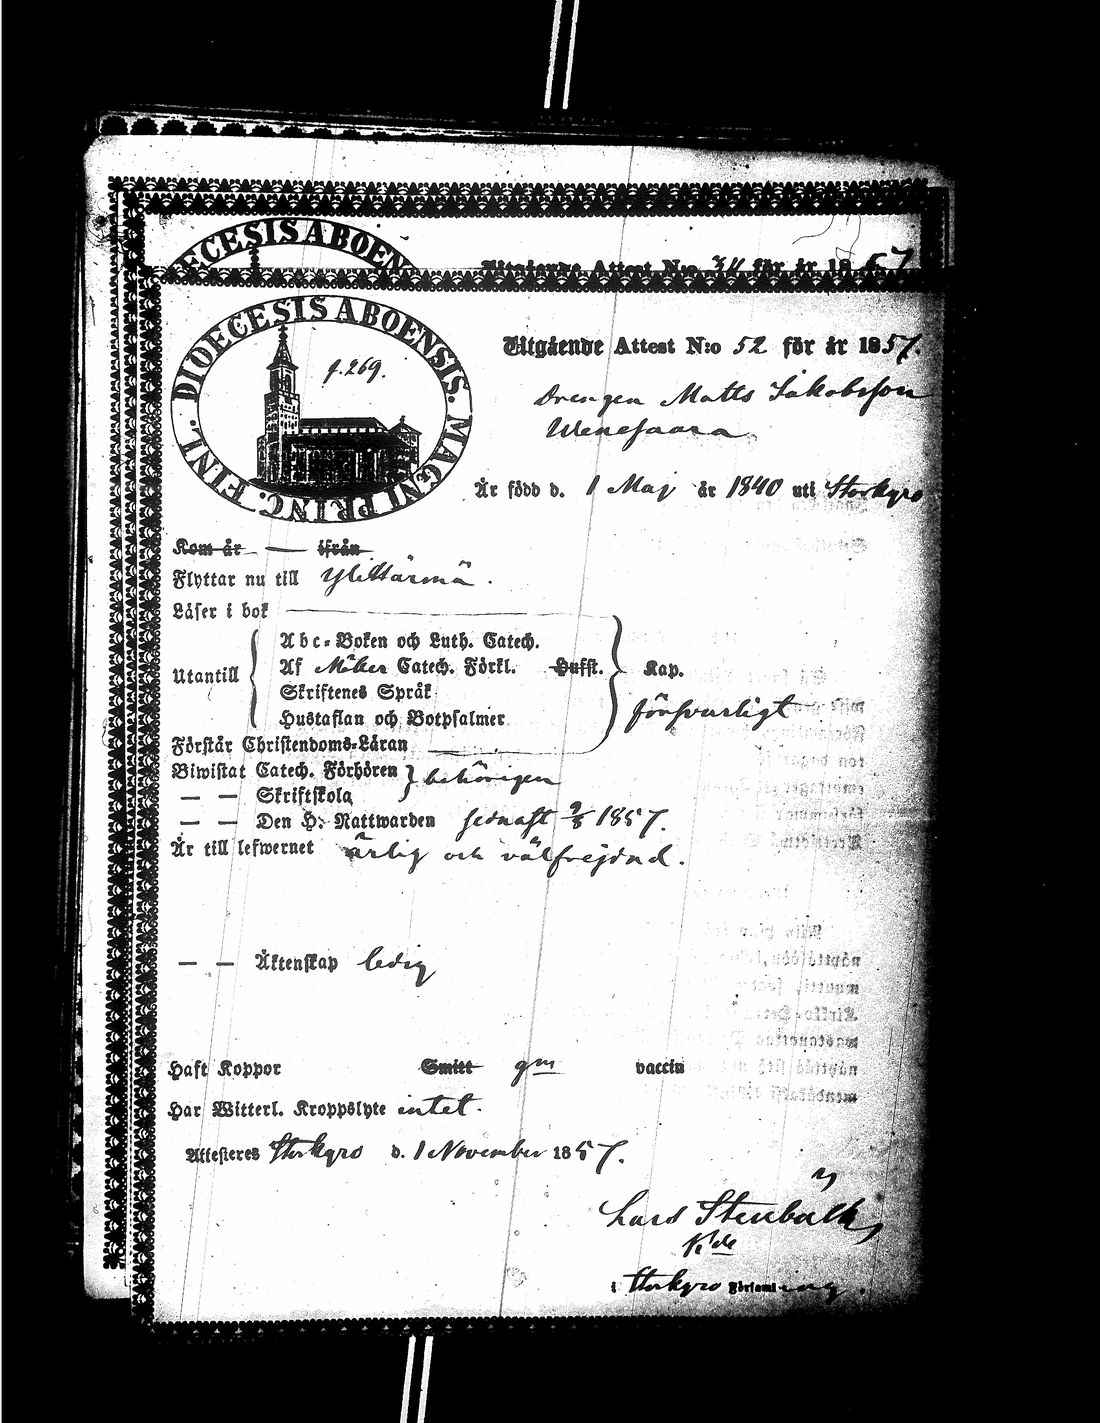 DIOECESIS ABOEN
Utgående Attest N:o 34 för år 1857
DIOECESIS ABOENSIS. MAGNI PRINC. FINL.
f. 269.
Utgående Attest N:o 52 för år 1857.
Drengen Matts Jakobsson
Wenesaara
Är född d. 1 Maj år 1840 uti Storkyro
Kom år — ifrån
Flyttar nu till Ylihärmä.
Läser i bok
Utantill
Abc-Boken och Luth. Catech.
Af Möller Catech. Förkl. Hufst. Kap.
Skriftenes Språk
Hustaflan och Botpsalmer
försvarligt
Förstår Christendoms-Läran
Biwistat Catech. Förhören
behörigen
— — Skriftskola
— — Den H. Nattwarden sednast 2/8 1857.
Är till lefwernet ärlig och välfrejdad.
— — Äktenskap ledig
Haft Koppor Smitt gm vaccin
Har Witterl. Kroppslyte intet.
Attesteras Storkyro d. 1 November 1857.
Lars Stenbäck
Khde
i Storkyro Församling.